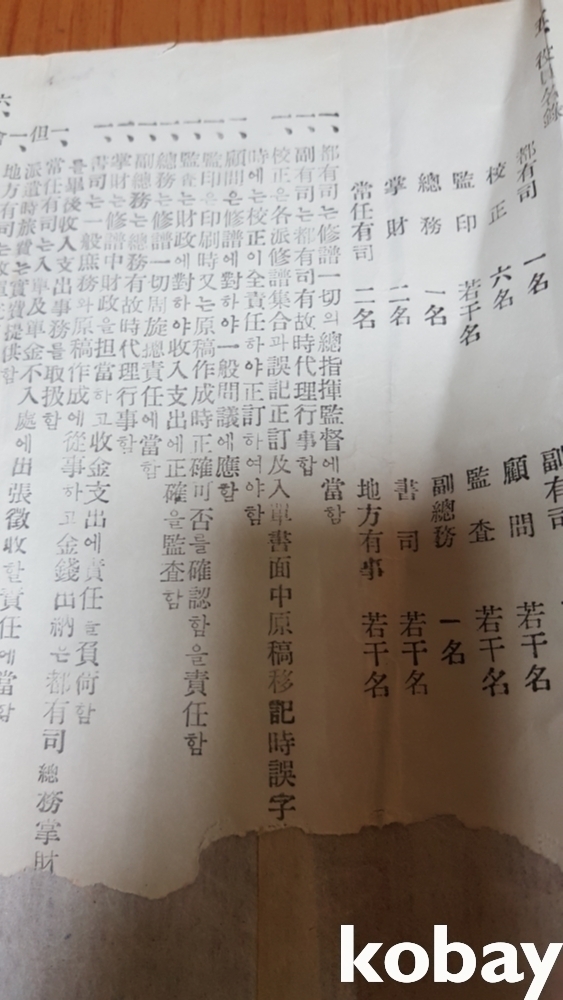 五、役員名錄
都有司 一名 副有司
校正 六名 顧問 若干名
監印 若干名 監査 若干名
總務 一名 副總務 一名
掌財 二名 書司 若干名
常任有司 二名 地方有事 若干名
一、都有司는修譜一切의總指揮監督에當함
一、副有司는都有司有故時代理行事함
一、校正은各派修譜集合과誤記正訂及入單書面中原稿移記時誤字
時에는校正이全責任하야正訂하여야함
一、顧問은修譜에對하야一般問議에應함
一、監印은印刷時又는原稿作成時正確可否를確認함을責任함
一、監査는財政에對하야收入支出에正確을監査함
一、總務는修譜一切周旋摠責任에當함
一、副總務는總務有故時代理行事함
一、掌財는修譜中財政을担當하고收金支出에責任을負荷함
一、書司는一般庶務와原稿作成에從事하고金錢出納은都有司總務掌財
를畢後收入支出事務를取扱함
一、常任有司는入單及單金不入處에出張徵收할責任에當함
但 派遣時旅費는實費提供함
一、地方有司는
六、會
kobay